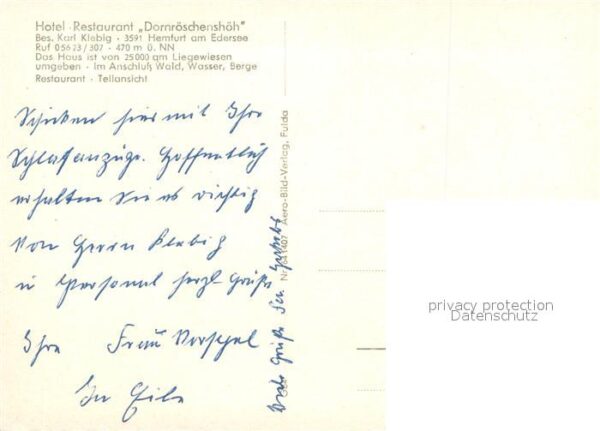 Hotel · Restaurant „Dornröschenshöh"
Bes. Karl Klebig · 3591 Hemfurt am Edersee
Ruf 05623/307 · 470 m ü. NN
Das Haus ist von 25000 qm Liegewiesen
umgeben · Im Anschluß Wald, Wasser, Berge
Restaurant · Teilansicht
Schicken hiermit Ihre
Schlafanzüge. Hoffentlich
erhalten Sie es richtig
Von Herrn Klebig
u Personal herzl. Grüße
Ihre Frau
In Eile
Viele Grüße
Nr. 641407 Aero-Bild-Verlag, Fulda
privacy protection
Datenschutz